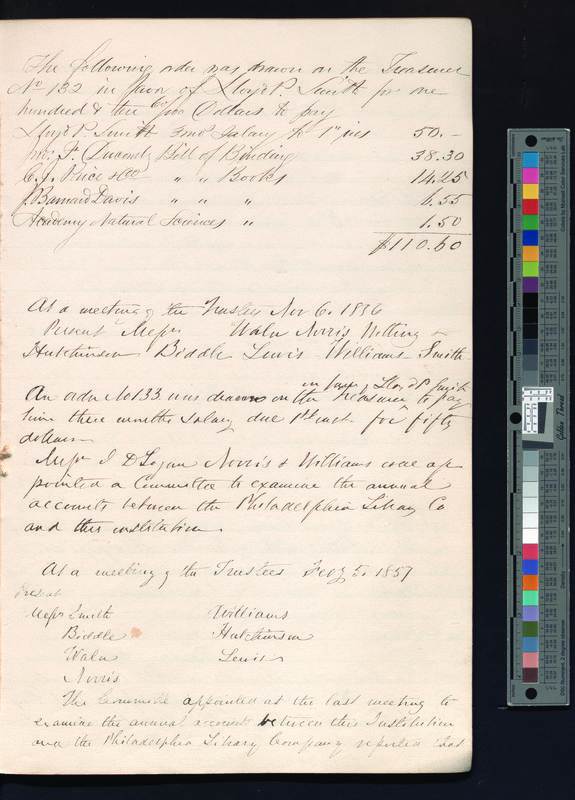 The following order was drawn on the Treasurer
No 132 in favor of Lloyd P. Smith for one
hundred & ten 60/100 Dollars to pay
Lloyd P. Smith 3 mos Salary to 1st ins 50.-
F. Bill of Binding 38.30
C. J. Price & Co " " Books 14.25
J. Barnard Davis " " " 6.55
Academy Natural Sciences " 1.50
$110.60
At a meeting of the Trustees Nov 6. 1856
Present Messrs Waln Norris
Hutchinson Biddle Lewis Williams Smith
in favor of Lloyd P Smith
An order No 133 was drawn on the Treasurer to pay
him three months Salary due 1st inst. for fifty
dollars
Messrs J D Logan Norris & Williams were ap
pointed a Committee to examine the annual
accounts between the Philadelphia Library Co
and this institution.
At a meeting of the Trustees Feby 5. 1857
Present
Messrs Smith Williams
Biddle Hutchinson
Waln Lewis
Norris
The Committee appointed at the last meeting to
examine the annual account between this Institution
and the Philadelphia Library Company reported that
Golden Thread